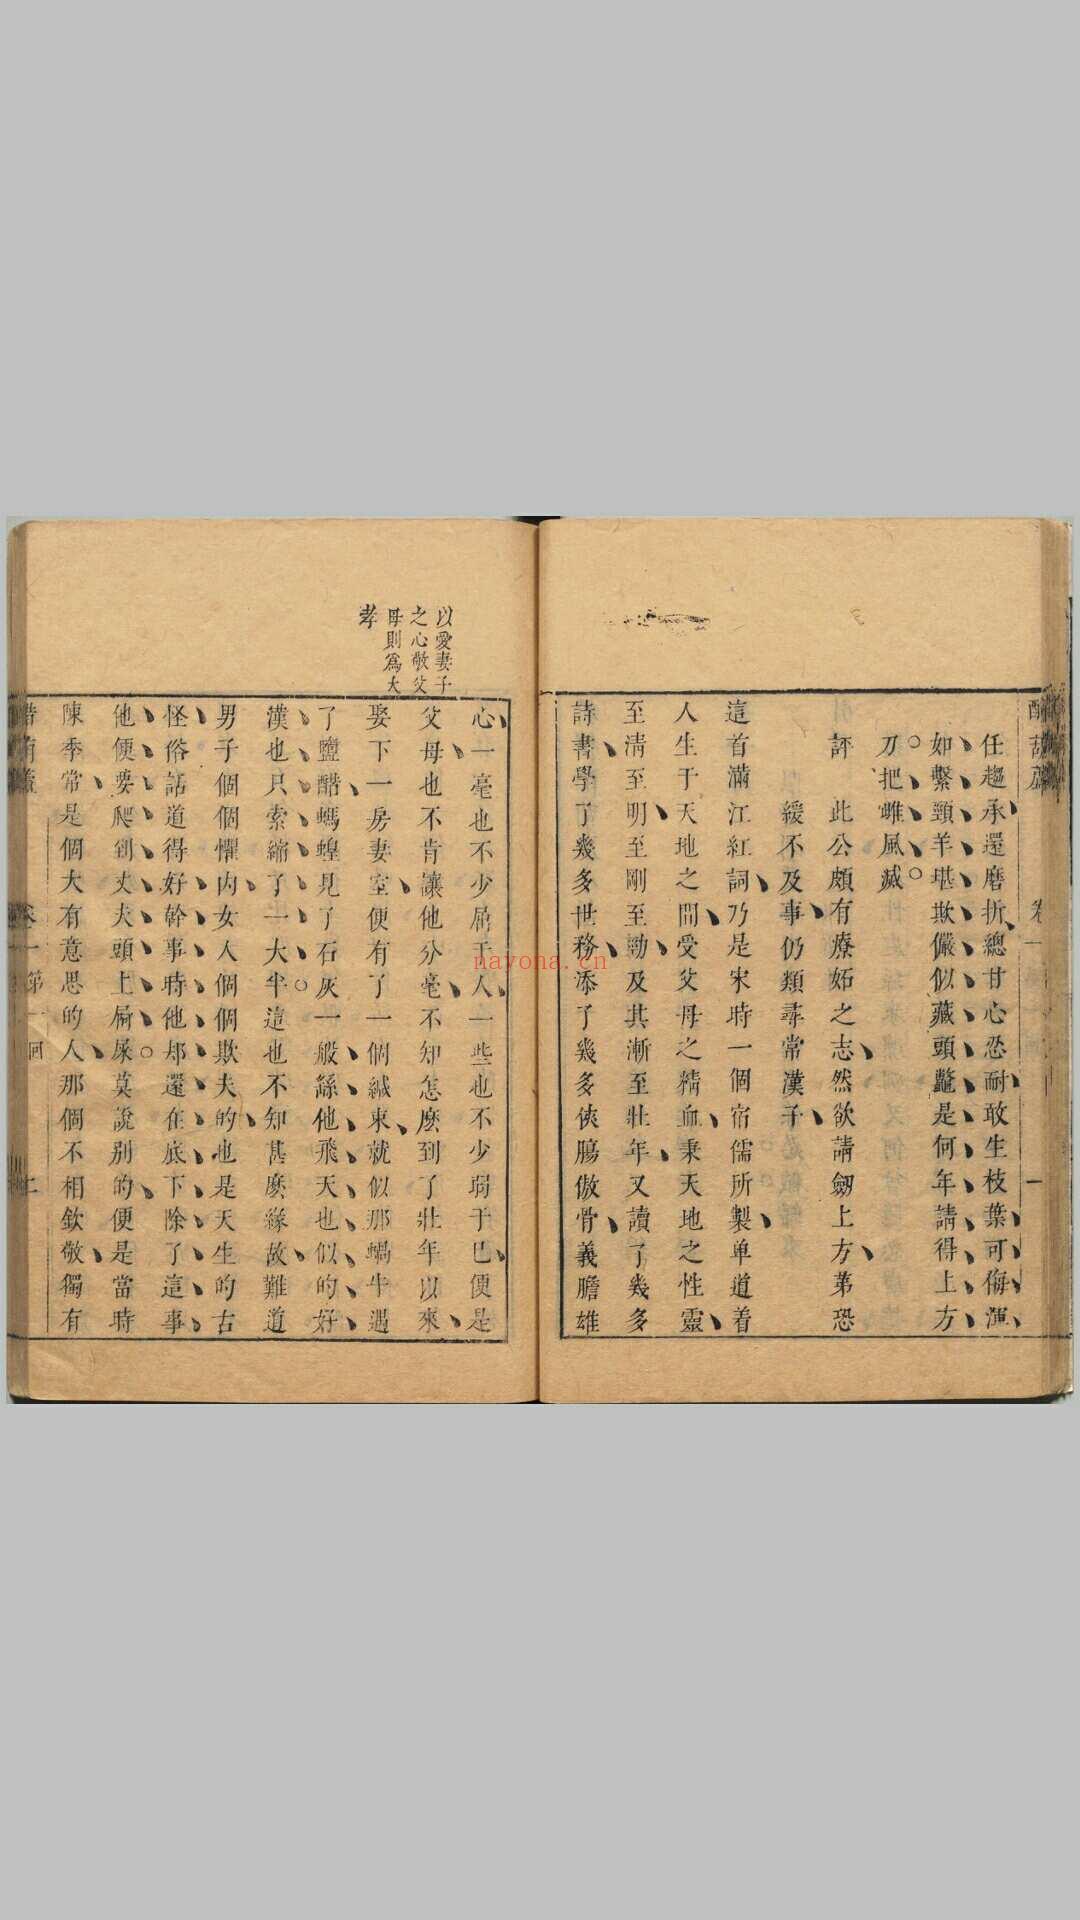 醋葫蘆
卷一
一
任趨承還磨折總甘心忍耐敢生枝葉可侮渾
如繫頸羊堪欺儼似藏頭鼈是何年請得上方
刀把雌風滅
評　此公頗有療妬之志然欲請劒上方第恐
緩不及事仍類尋常漢子
這首滿江紅詞乃是宋時一個宿儒所製单道着
人生于天地之間受父母之精血秉天地之性靈
至淸至明至剛至勁及其漸至壯年又讀了幾多
詩書學了幾多世務添了幾多俠腸傲骨義膽雄
以愛妻子
之心敬父
母則爲大
孝
心一毫也不少屈于人一些也不少弱于巳便是
父母也不肯讓他分毫不知怎麽到了壯年以來
娶下一房妻室便有了一個緘束就似那蝸牛遇
了鹽醋螞蝗見了石灰一般繇他飛天也似的好
漢也只索縮了一大半這也不知甚麽緣故難道
男子個個懼内女人個個欺夫的也是天生的古
怪俗話道得好幹事時他却還在底下除了這事
他便要爬到丈夫頭上屙屎莫說别的便是當時
陳季常是個大有意思的人那個不相欽敬獨有
卷一第一回
二
nayona.cn